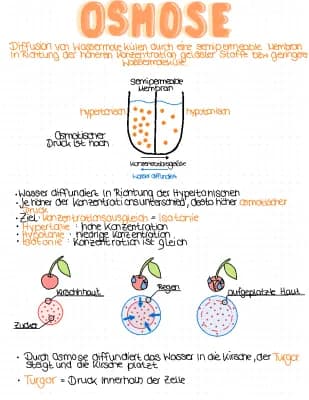 OSMOSE
Diffusion von Wassermolekülen durch eine semipermeable Membran
in Richtung der höheren Konzentration gelöster Stoffe bzw. geringere
Wassermoleküle
semipermeable
Membran
hypertonisch
hypotonisch
Osmotischer
Druck ist hoch
Konzentrationsgefälle
Wasser diffundiert
· Wasser diffundiert in Richtung der Hypertonischen
· Je höher der Konzentrationsunterschied, desto höher osmotischer
Druck
· Ziel: Konzentrationsausgleich = Isotonie
· Hypertonie: hohe Konzentration
· Hypotonie: niedrige Konzentration
· Isotonie: Konzentration ist gleich
Kirschhaut
Regen
aufgeplatzte Haut
Zucker
· Durch Osmose diffundiert das Wasser in die Kirsche, der Turgor
steigt und die Kirsche platzt
· Turgor = Druck innerhalb der Zelle